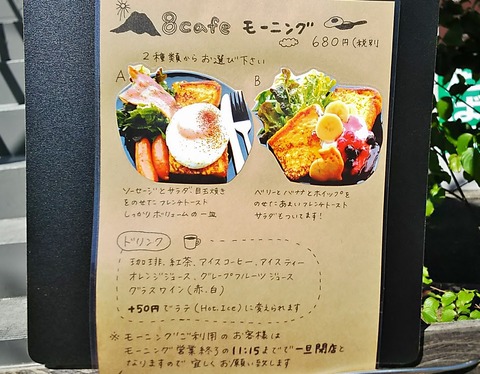 8cafe モーニング
680円(税別)
2種類からお選び下さい
A
B
ソーセージとサラダ、目玉焼き
をのせたフレンチトースト
しっかりボリュームの一皿
ベリーとバナナとホイップを
のせたあまいフレンチトースト
サラダもついてます!
ドリンク
珈琲、紅茶、アイスコーヒー、アイスティー
オレンジジュース、グレープフルーツジュース
グラスワイン(赤、白)
+50円でラテ(Hot、Ice)に変えられます
※モーニングご利用のお客様は
モーニング営業終了の11:15までで一旦閉店と
なりますので宜しくお願い致します